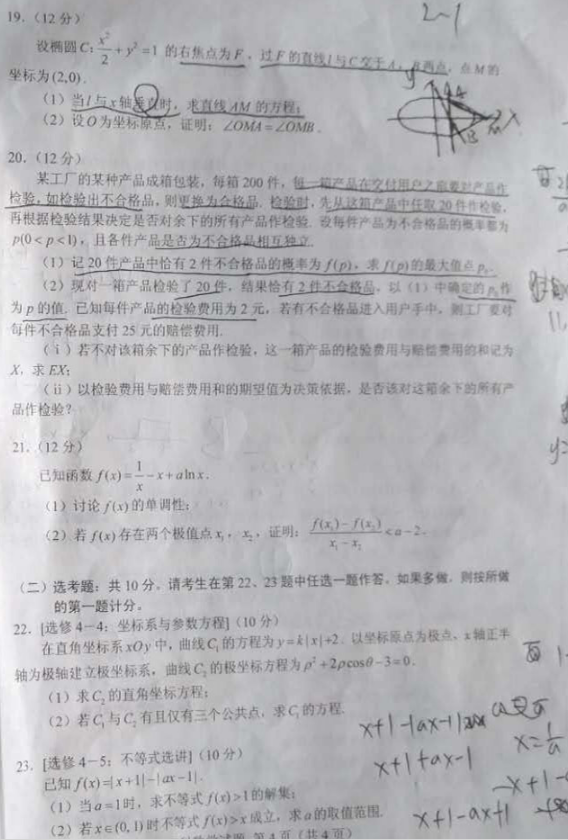 2~1
19.（12分）
设椭圆C：x²/2+y²=1 的右焦点为F，过F的直线l与C交于A，B两点，点M的
坐标为(2,0).
（1）当l与x轴垂直时，求直线AM的方程；
（2）设O为坐标原点，证明：∠OMA=∠OMB.
20.（12分）
某工厂的某种产品成箱包装，每箱200件，每一箱产品在交付用户之前要对产品作
检验，如检验出不合格品，则更换为合格品.检验时，先从这箱产品中任取20件作检验，
再根据检验结果决定是否对余下的所有产品作检验.设每件产品为不合格品的概率都为
p(0<p<1)，且各件产品是否为不合格品相互独立.
（1）记20件产品中恰有2件不合格品的概率为f(p)，求f(p)的最大值点p₀.
（2）现对一箱产品检验了20件，结果恰有2件不合格品，以（1）中确定的p₀作
为p的值.已知每件产品的检验费用为2元，若有不合格品进入用户手中，则工厂要对
每件不合格品支付25元的赔偿费用.
（i）若不对该箱余下的产品作检验，这一箱产品的检验费用与赔偿费用的和记为
X，求EX；
（ii）以检验费用与赔偿费用和的期望值为决策依据，是否该对这箱余下的所有产
品作检验？
21.（12分）
已知函数f(x)=1/x-x+alnx.
（1）讨论f(x)的单调性；
（2）若f(x)存在两个极值点x₁，x₂，证明：(f(x₁)-f(x₂))/(x₁-x₂)<a-2.
（二）选考题：共10分，请考生在第22、23题中任选一题作答，如果多做，则按所做
的第一题计分。
22.[选修4-4：坐标系与参数方程]（10分）
在直角坐标系xOy中，曲线C₁的方程为y=k|x|+2.以坐标原点为极点，x轴正半
轴为极轴建立极坐标系，曲线C₂的极坐标方程为ρ²+2ρcosθ-3=0.
（1）求C₂的直角坐标方程；
（2）若C₁与C₂有且仅有三个公共点，求C₁的方程.
x+1-|ax-1|
x=1/a
x+1+ax-1
x+1-ax+1
23.[选修4-5：不等式选讲]（10分）
已知f(x)=|x+1|-|ax-1|.
（1）当a=1时，求不等式f(x)>1的解集；
（2）若x∈(0,1)时不等式f(x)>x成立，求a的取值范围.
第4页（共4页）